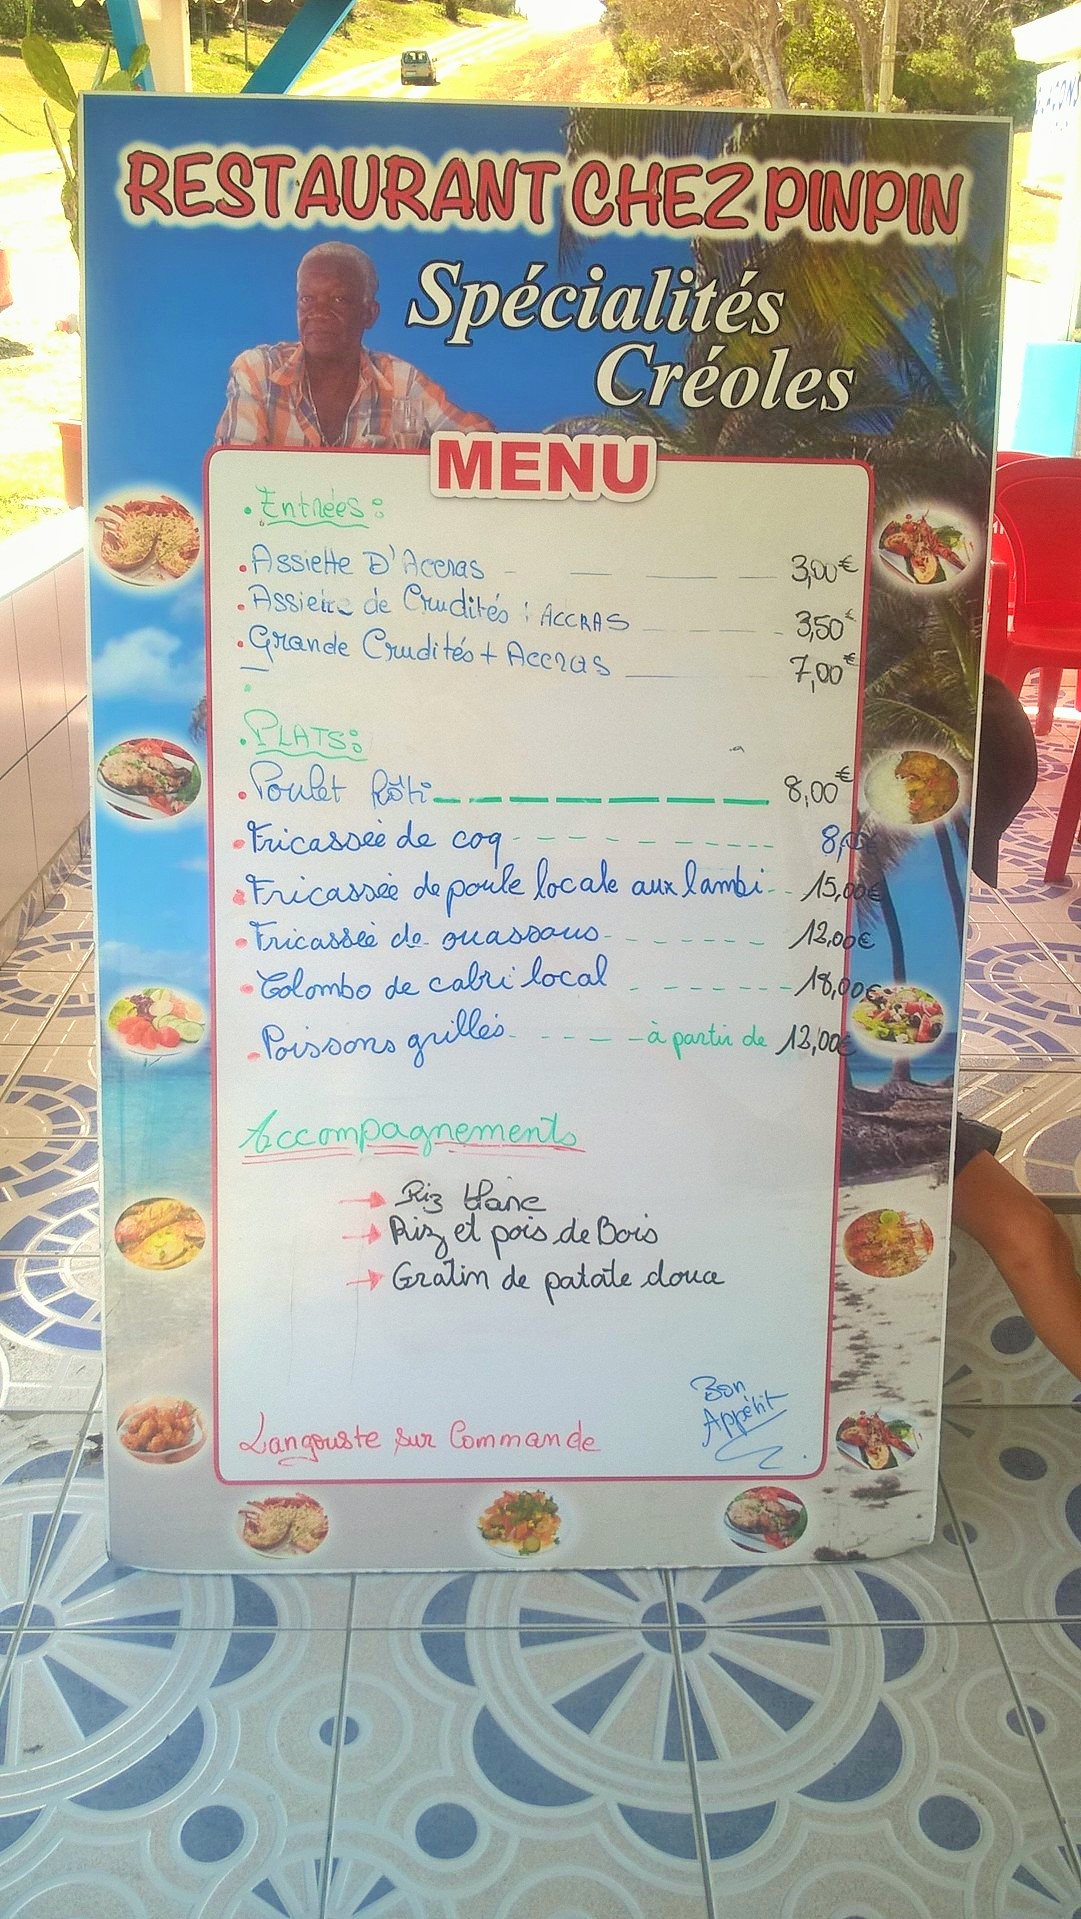 RESTAURANT CHEZ PINPIN
Spécialités
Créoles
MENU
Entrées :
Assiette D'Accras 3,00€
Assiette de Crudités : ACCRAS 3,50€
Grande Crudités + Accras 7,00€
PLATS:
Poulet Rôti 8,00€
Fricassée de coq 8,00€
Fricassée de poule locale aux lambi 15,00€
Fricassée de ouassous 12,00€
Colombo de cabri local 18,00€
Poissons grillés à partir de 12,00€
Accompagnements
→ Riz blanc
→ Riz et pois de Bois
→ Gratin de patate douce
Bon
Appétit
Langouste sur Commande